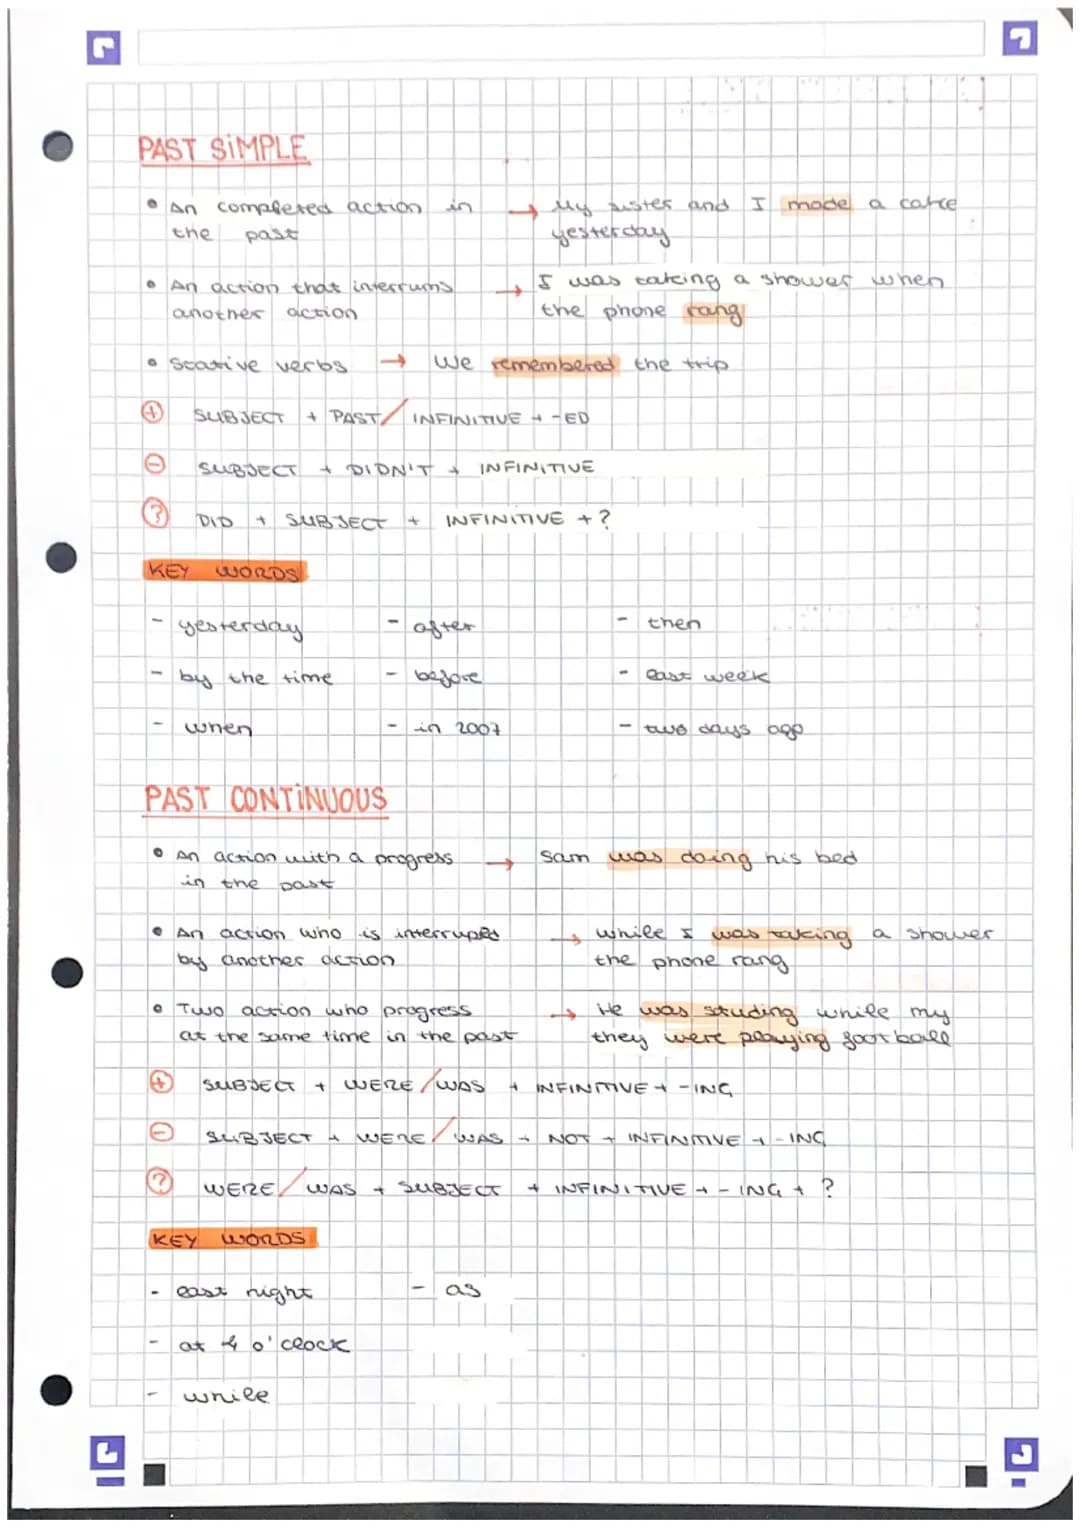 PAST SIMPLE
• An completed action in → My sister and I made a cake
the past yesterday
• An action that interrums → I was taking a shower when
another action the phone rang
• Stative verbs → We remembered the trip
+ SUBJECT + PAST / INFINITIVE + -ED
- SUBJECT + DIDN'T + INFINITIVE
? DID + SUBJECT + INFINITIVE + ?
KEY WORDS
- yesterday - after - then
- by the time - before - last week
- when - in 2007 - two days ago
PAST CONTINUOUS
• An action with a progress → Sam was doing his bed
in the past
• An action who is interruped → while I was taking a shower
by another action the phone rang
• Two action who progress → He was studing while my
at the same time in the past they were playing football
+ SUBJECT + WERE / WAS + INFINITIVE + -ING
- SUBJECT + WERE / WAS + NOT + INFINITIVE + -ING
? WERE / WAS + SUBJECT + INFINITIVE + -ING + ?
KEY WORDS
- last night - as
- at 4 o'clock
- while